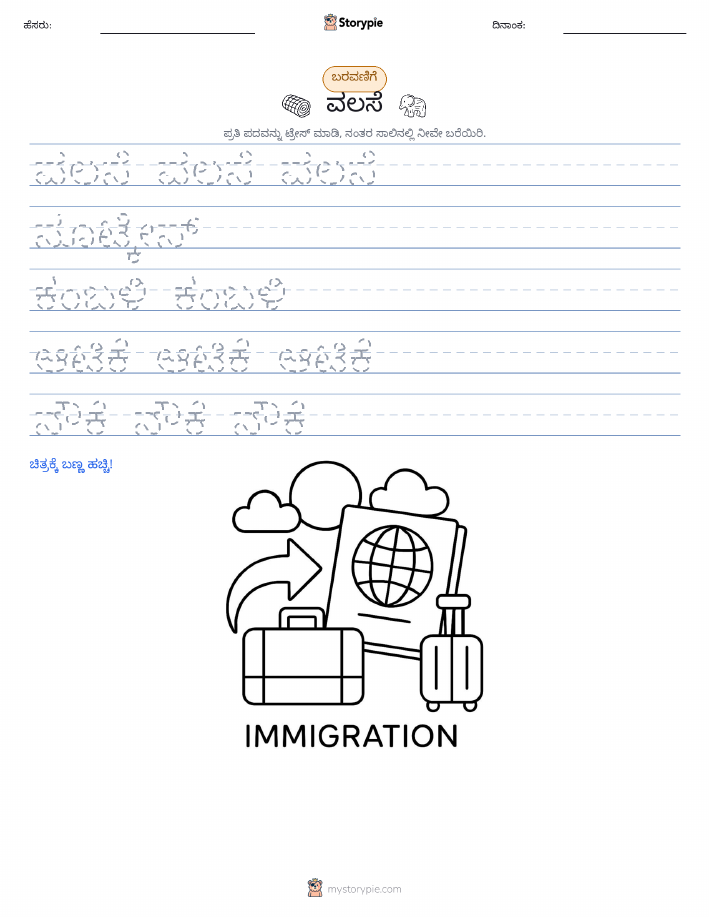 ಹೆಸರು: Storypie ದಿನಾಂಕ:
ಬರವಣಿಗೆ
ವಲಸೆ
ಪ್ರತಿ ಪದವನ್ನು ಟ್ರೇಸ್ ಮಾಡಿ, ನಂತರ ಸಾಲಿನಲ್ಲಿ ನೀವೇ ಬರೆಯಿರಿ.
ವಲಸೆ ವಲಸೆ ವಲಸೆ
ಸೂಟ್ಕೇಸ್
ಕಂಬಳಿ ಕಂಬಳಿ
ಆಟಿಕೆ ಆಟಿಕೆ ಆಟಿಕೆ
ನೌಕೆ ನೌಕೆ ನೌಕೆ
ಚಿತ್ರಕ್ಕೆ ಬಣ್ಣ ಹಚ್ಚಿ!
IMMIGRATION
mystorypie.com